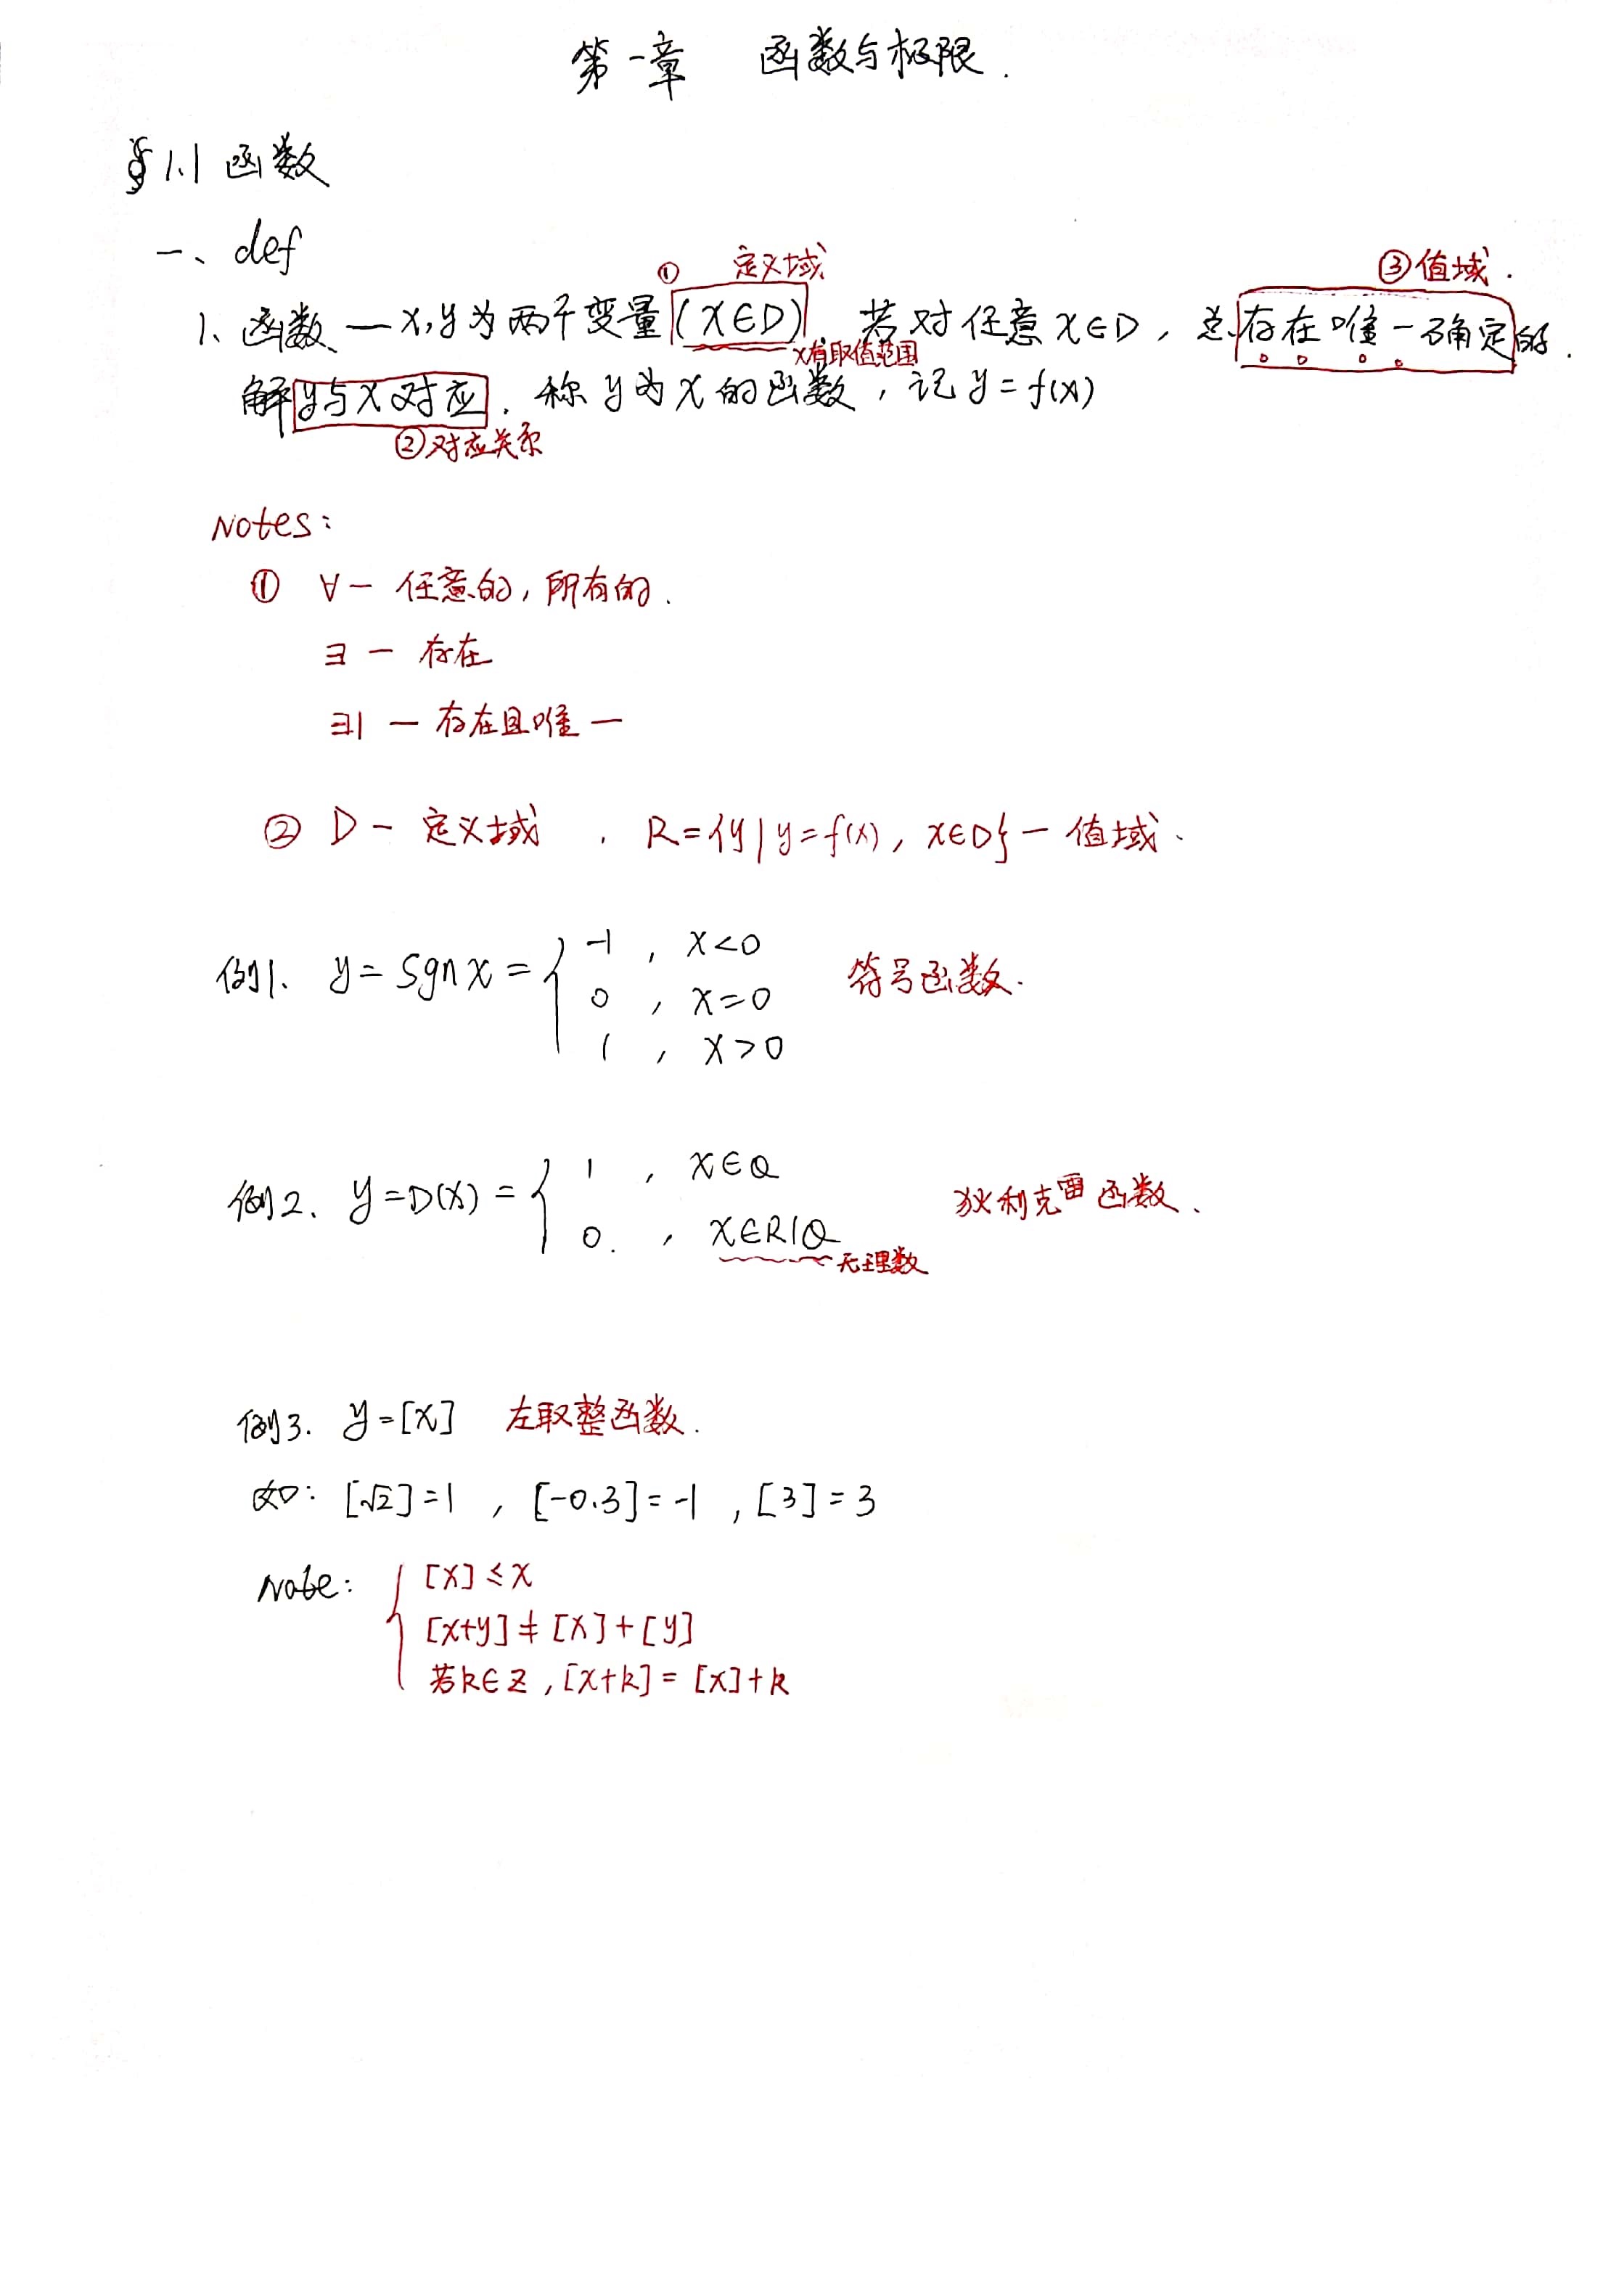 第一章 函数与极限.
§1.1 函数
一、def
① 定义域 ③值域.
1、函数 — x,y为两个变量(x∈D), 若对任意x∈D, 总存在唯一确定的
x有取值范围
解y与x对应. 称y为x的函数, 记y=f(x)
②对应关系
Notes:
① ∀— 任意的, 所有的.
∃ — 存在
∃| — 存在且唯一
② D — 定义域 . R={y|y=f(x), x∈D} — 值域.
例1. y= Sgn x = { -1 , x<0 符号函数.
0 , x=0
1 , x>0
例2. y=D(x) = { 1 , x∈Q 狄利克雷函数.
0. , x∈R|Q 无理数
例3. y=[x] 左取整函数.
如: [√2]=1 , [-0.3]=-1 , [3]=3
Note: { [x]≤x
[x+y]≠[x]+[y]
若k∈Z, [x+k]=[x]+k